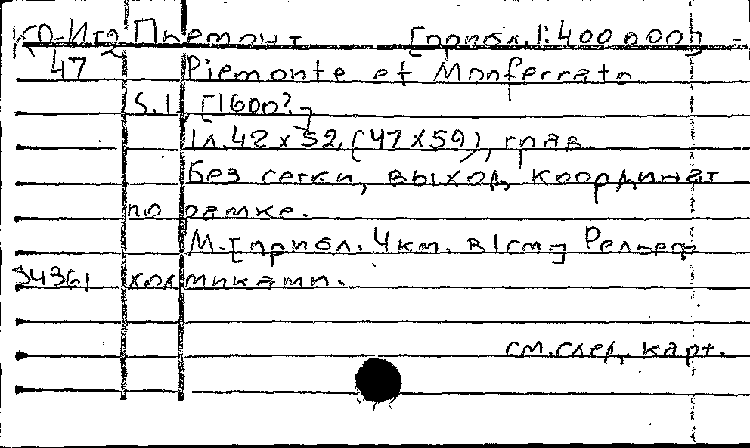 КО-Ит2 Пьемонт [прибл. 1:400 000]
47 Piemonte et Monferrato
S.l. [1600?]
1л. 42 x 52, (47 x 59), грав.
без сетки, выход. координат
по рамке.
М. [прибл. 4км. в 1см] Рельеф
34361 холмиками.
см. след. карт.